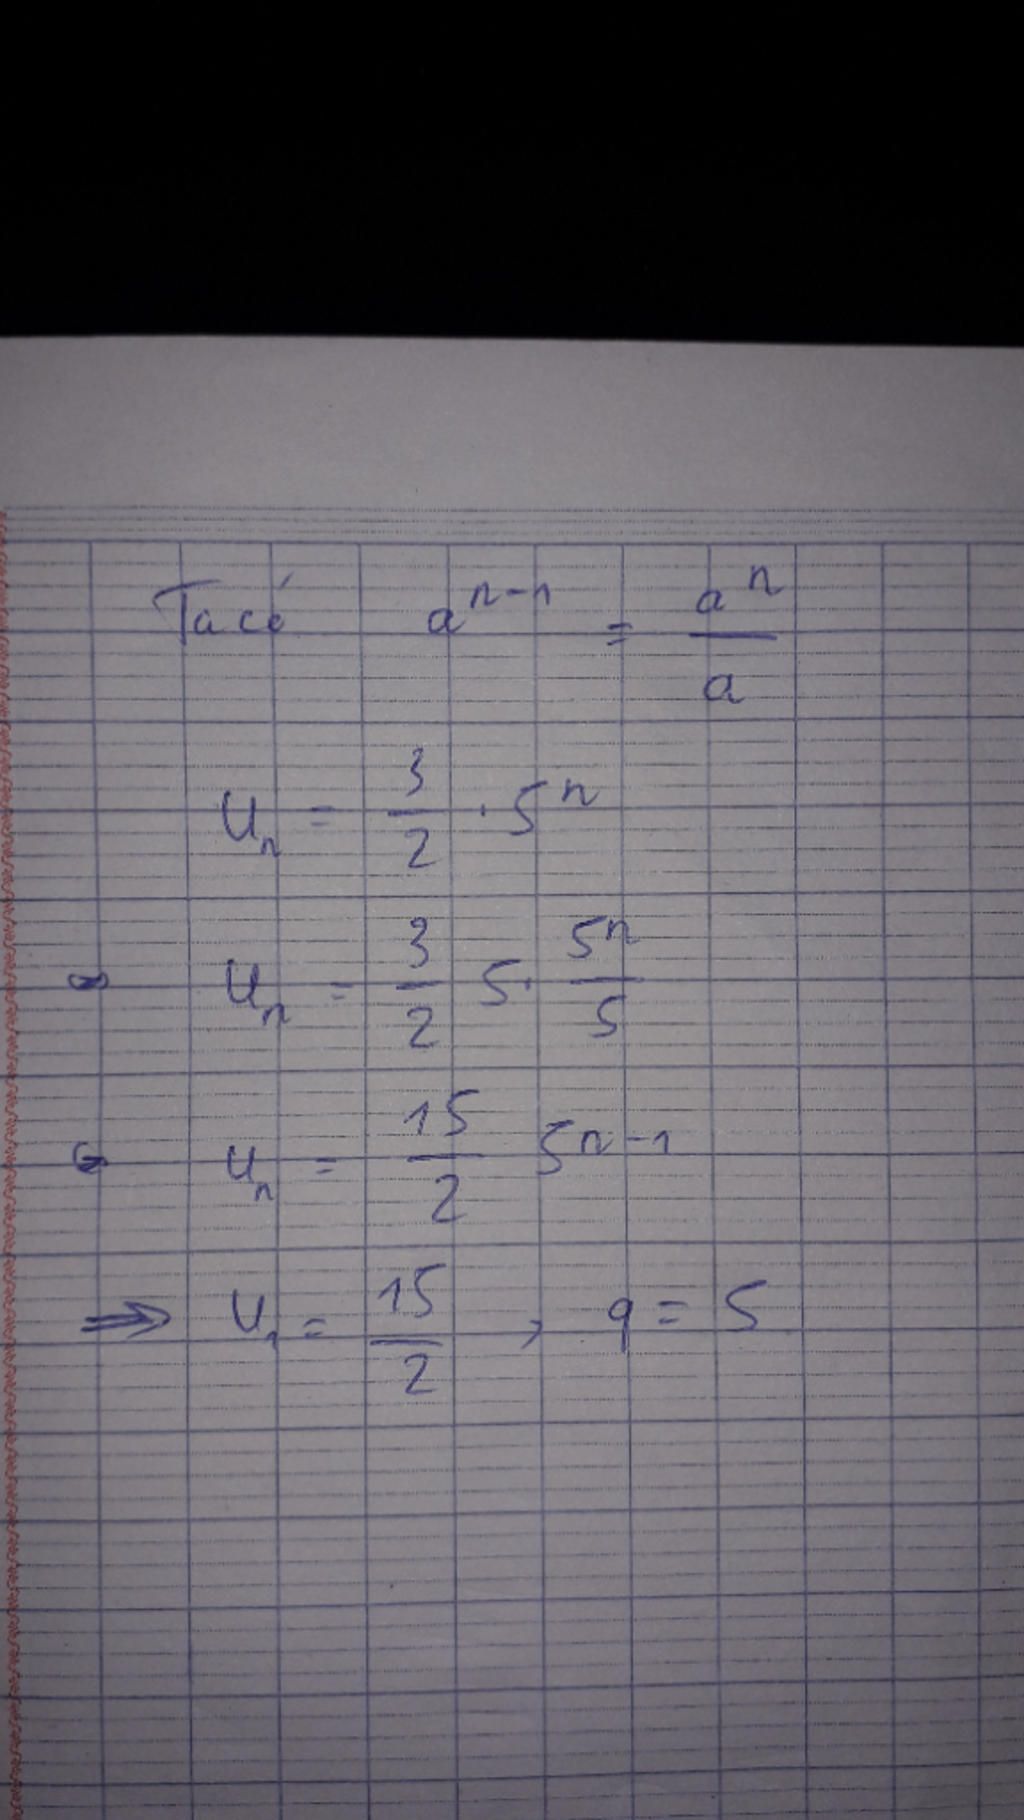 Ta có a^{n-1} = \frac{a^n}{a}
U_n = \frac{3}{2} . 5^n
U_n = \frac{3}{2} 5. \frac{5^n}{5}
U_n = \frac{15}{2} 5^{n-1}
⇒ U_1 = \frac{15}{2} , q = 5